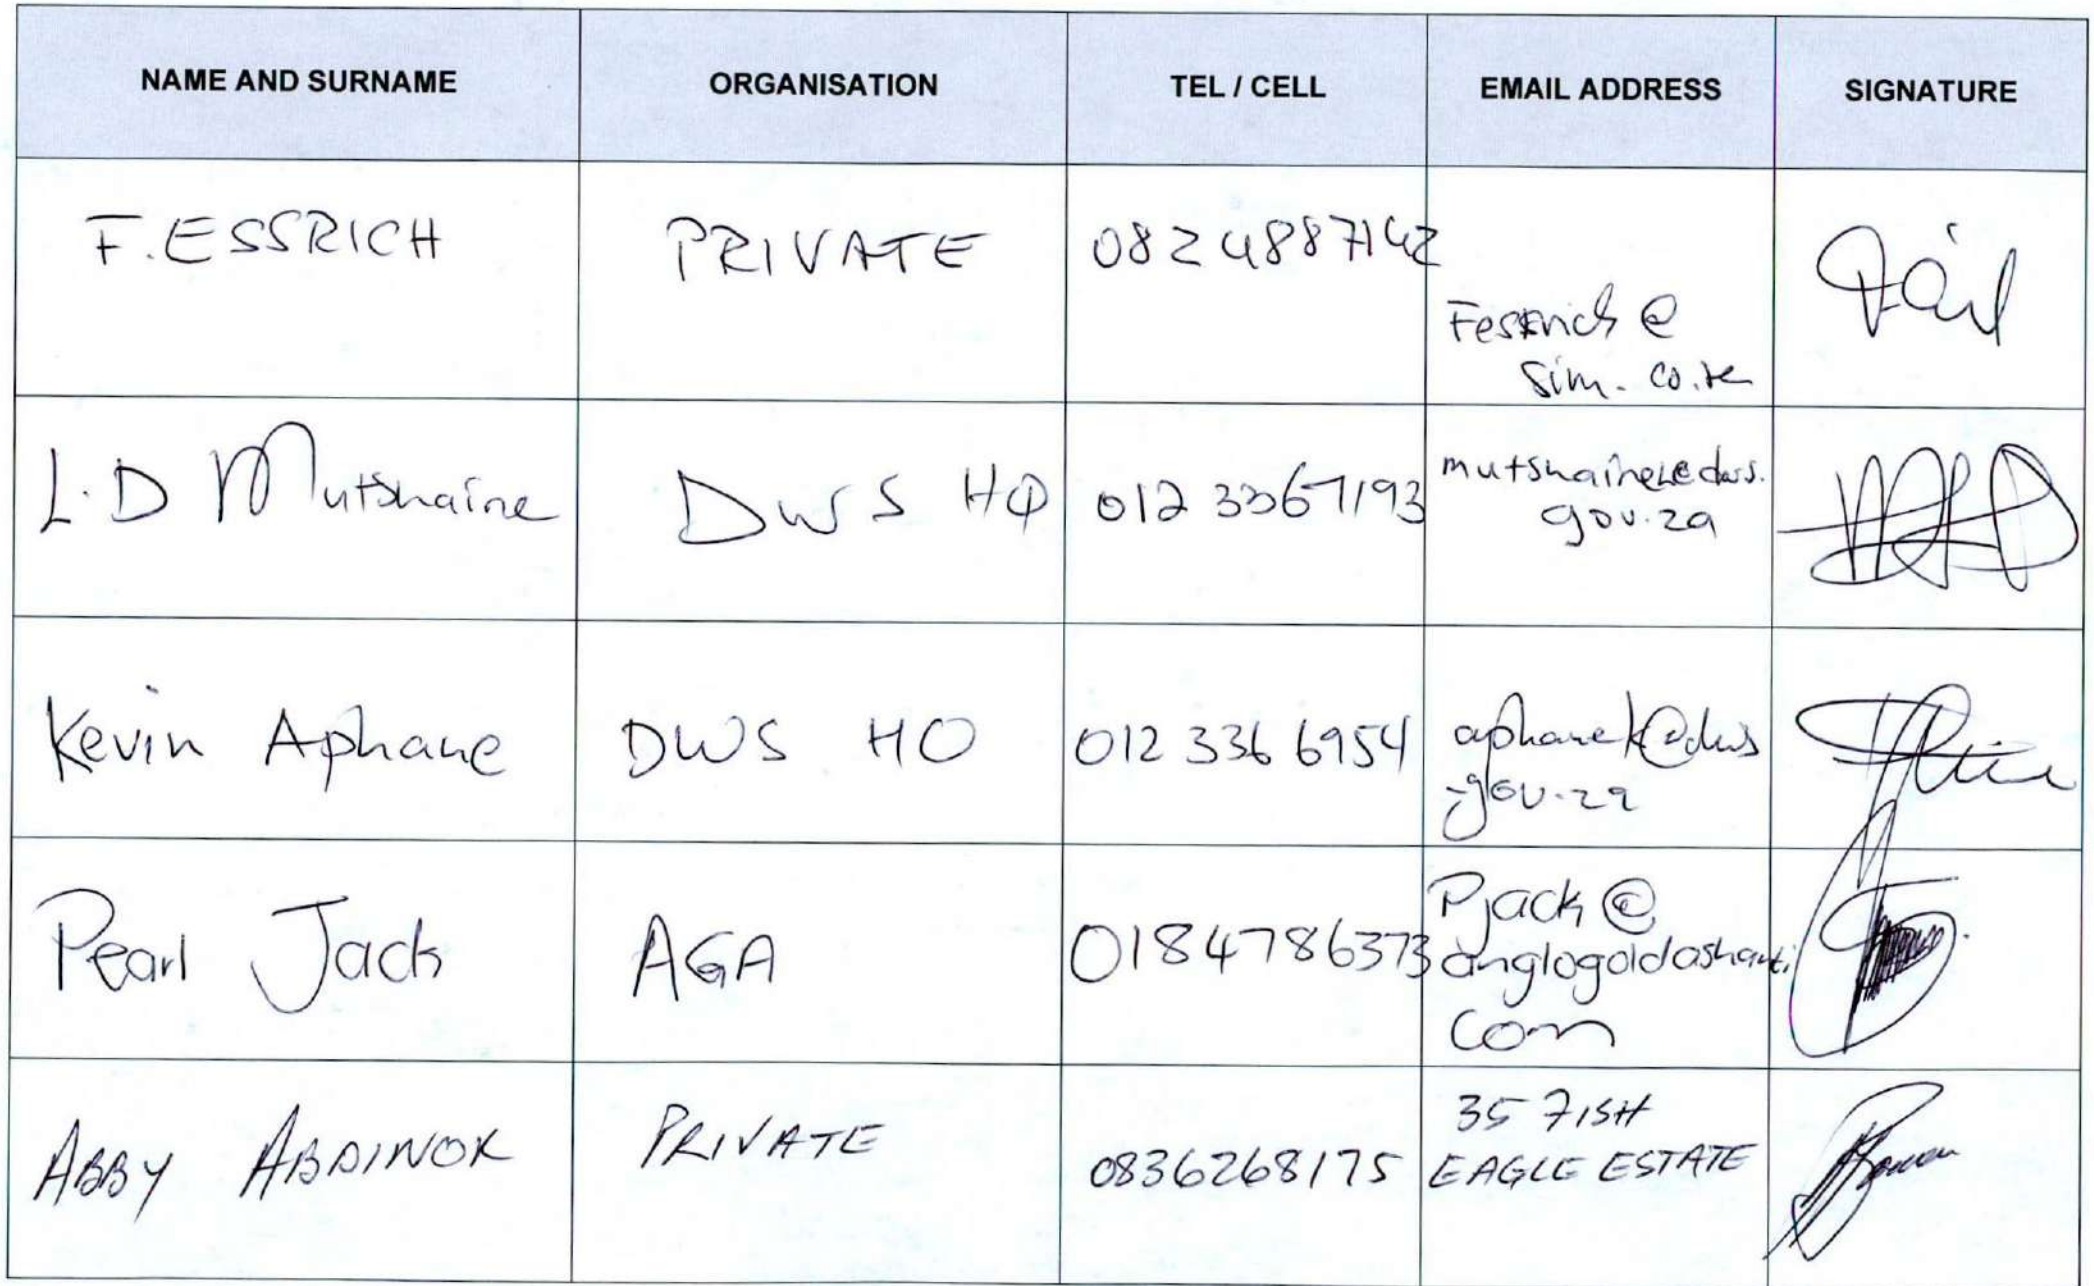 NAME AND SURNAME ORGANISATION TEL / CELL EMAIL ADDRESS SIGNATURE
F. ESSRICH PRIVATE 082 4887142
Fessrich @
sim. co.za
L.D Mutshaine DWS HO 012 3367193 mutshainele@dws.
gov.za
Kevin Aphane DWS HO 012 336 6954 aphanek@dws
.gov.za
Pearl Jack AGA 0184786373 Pjack @
anglogoldashanti
com
ABBY ABDINOR PRIVATE 0836268175 35 FISH
EAGLE ESTATE